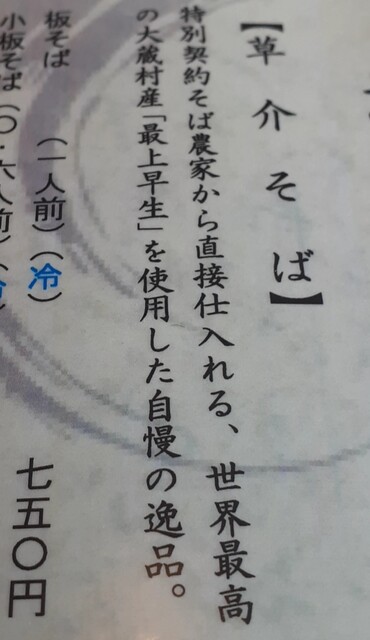 【草介そば】
特別契約そば農家から直接仕入れる、世界最高
の大蔵村産「最上早生」を使用した自慢の逸品。
板そば（一人前）（冷）七五〇円
小板そば（〇・六人前）（冷）